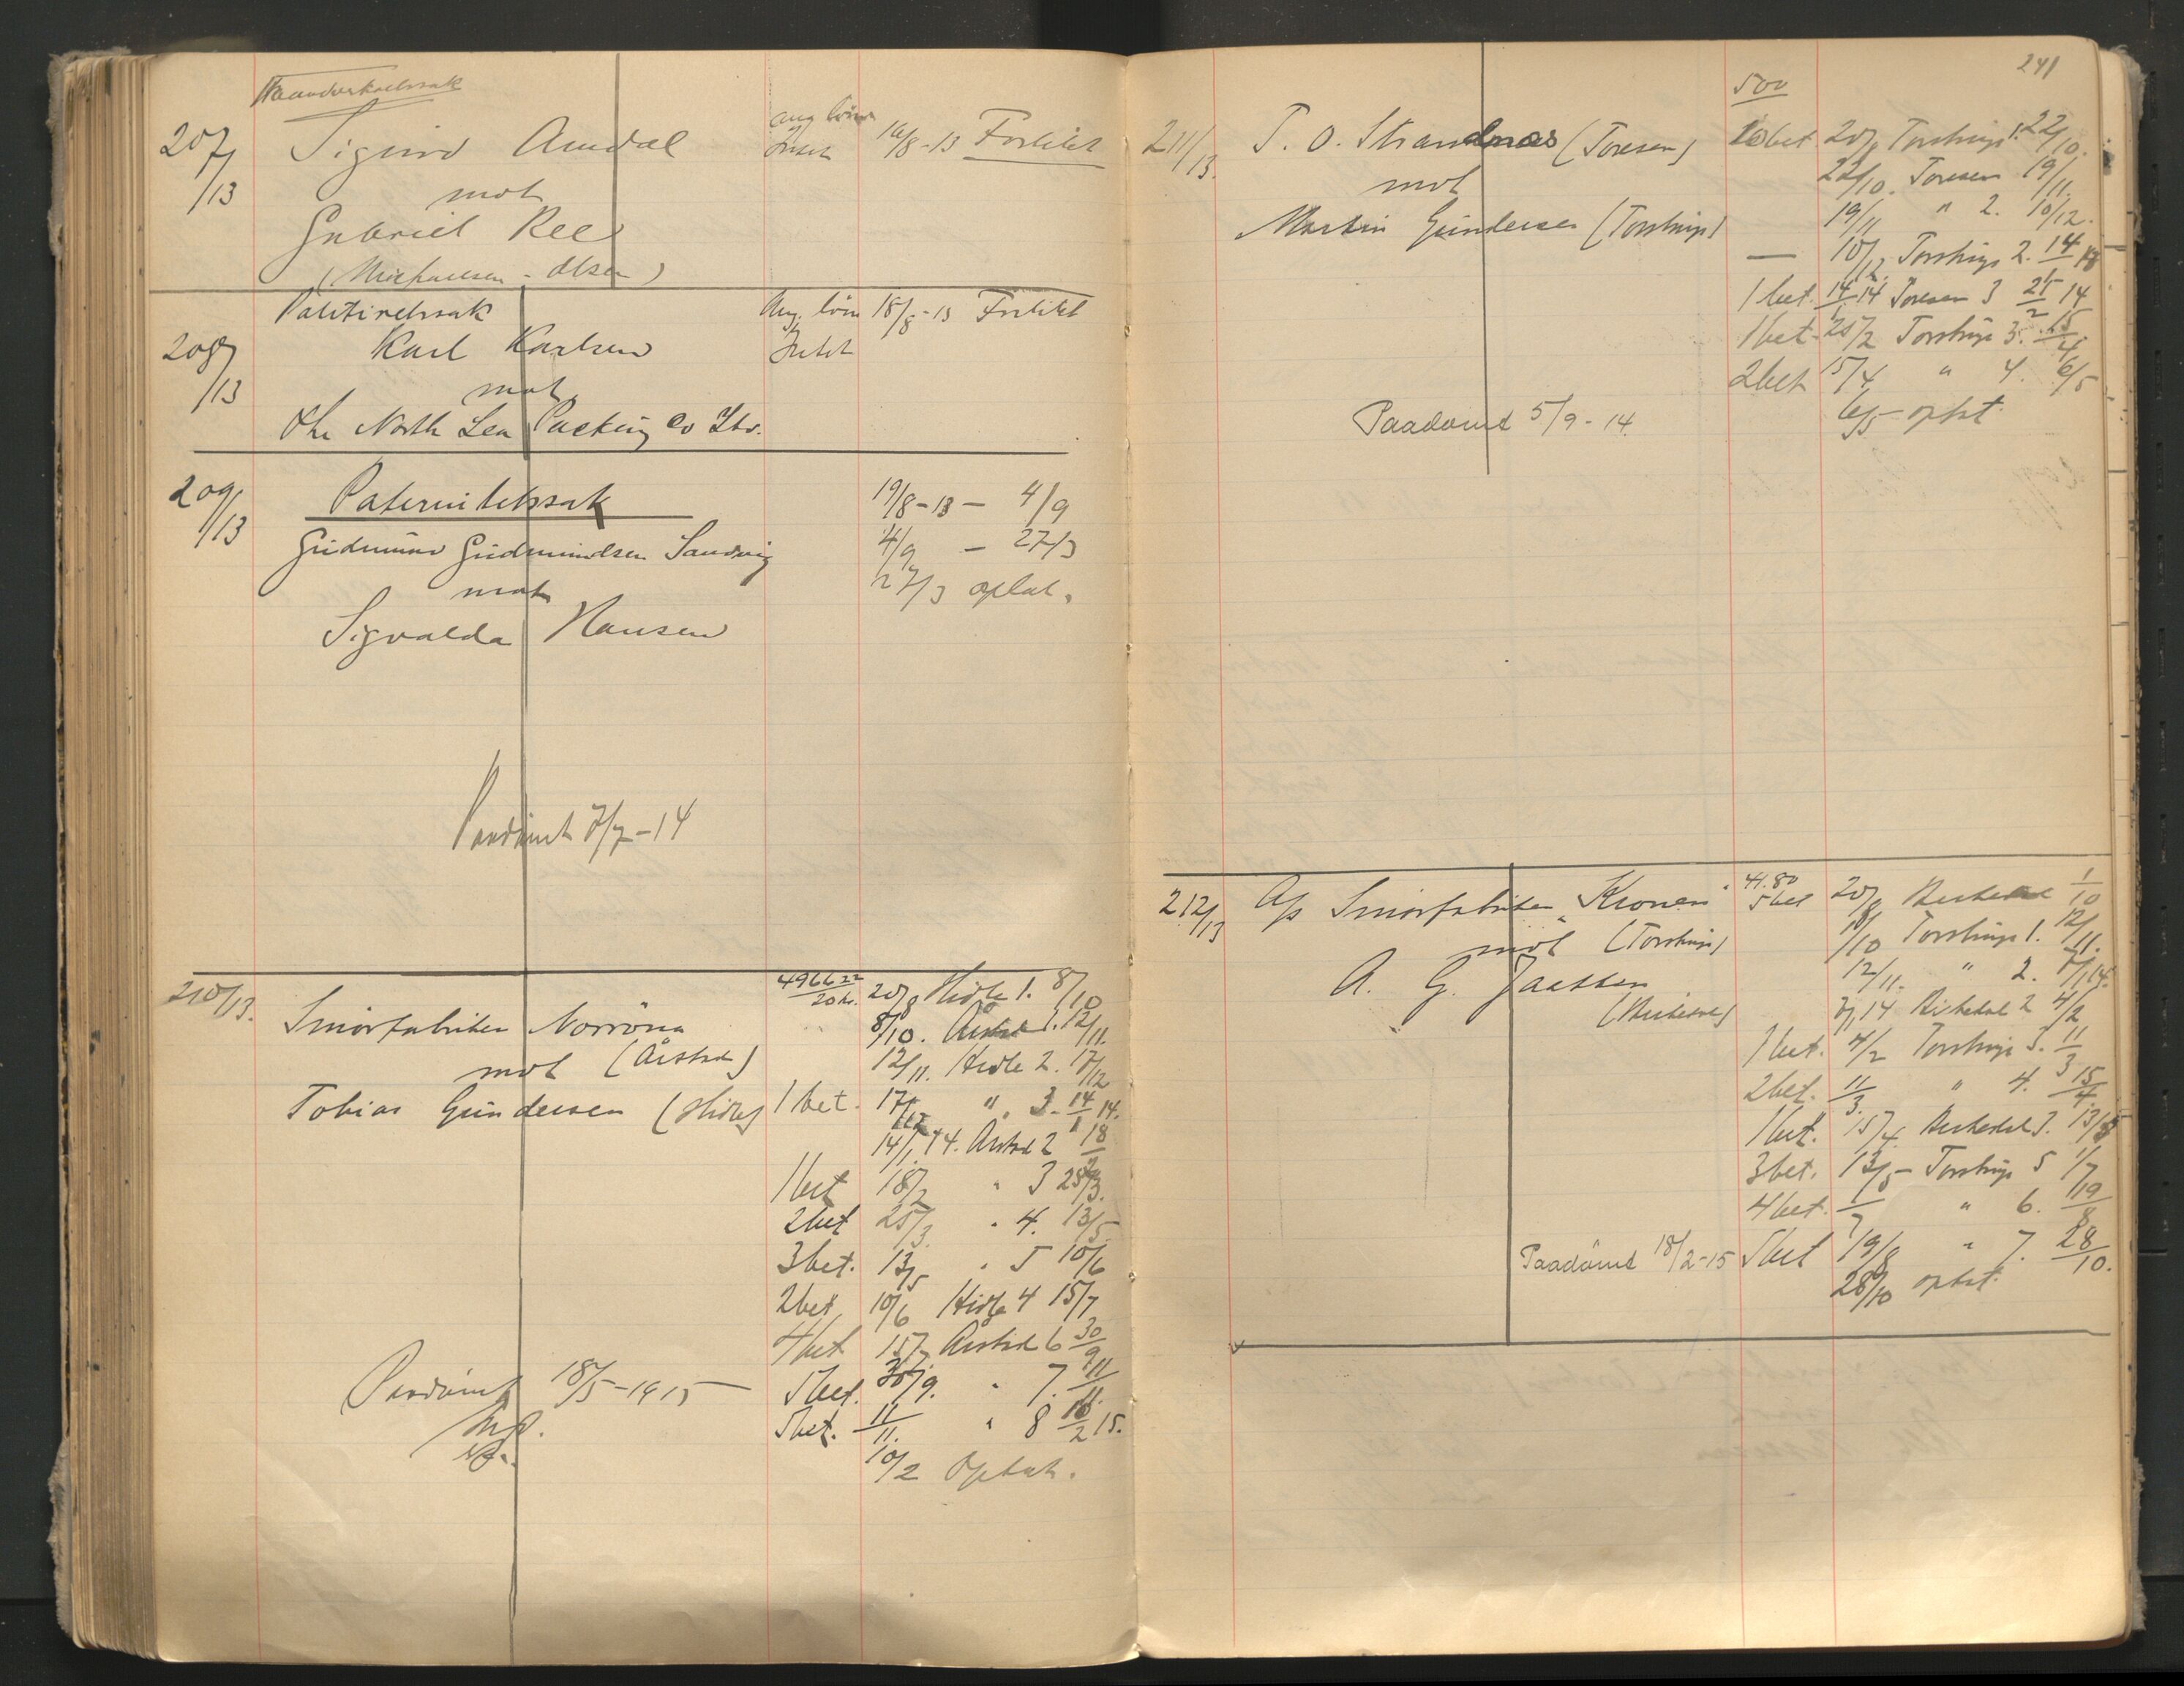 207/13
Sigurd Amdal
ang lön
16/8-13 Forlikt
mot
Gabriel Ree
(Michaelsen - Olsen)
208/13
Politiretssak
Ang. lön 18/8-13 Forlikt
Karl Karlsen
mot
The North Sea Packing Co Ltd.
209/13
Paternitetssak
19/8-13 - 4/9
Gudmund Gudmundsen Sandvig
4/9 - 27/3
mot
27/3 optat.
Sigvalda Hansen
Paadömt 7/7-14
210/13.
4966 22
20 h.
20/8 Hidle 1. 8/10
Smörfabriken Norröna
8/10. Aarstad 1. 12/11.
mot (Årstad)
12/11. Hidle 2. 17/12
Tobias Gundersen (Hidle)
1 bet. 17/12 " 3. 14/1 14.
14/1 14. Årstad 2 18/2
1 bet 18/2 " 3 25/3.
2 bet 25/3. " 4. 13/5
3 bet. 13/5 " 5 10/6
2 bet 10/6 Hidle 4 15/7
4 bet 15/7 Årstad 6 30/9
Paadömt 18/5-1915
5 bet. 30/9. " 7. 11/11.
5 bet. 11/11. " 8 10/2 15.
10/2 Optat.
241
500
211/13.
T. O. Strandnæs (Toresen)
10 bet 20/8 Torstrup 1. 22/10.
mot
22/10. Toresen 19/11.
Martin Gundersen (Torstrup)
19/11 " 2. 10/12.
— 10/12. Torstrup 2. 14/1 14
1 bet. 14/1 14 Toresen 3 25/2 14
1 bet. 25/2 Torstrup 3. 15/4
2 bet 15/4 " 4. 6/5
Paadömt 5/9-14.
6/5 optat
212/13
A/s Smörfabriken "Kronen"
41.80
5 bet
20/8 Birkedal 1/10
mot (Torstrup)
1/10 Torstrup 1. 12/11.
A. G. Jaatten
12/11. " 2. 7/1 14.
(Birkedal)
7/1 14 Birkedal 2 4/2
1 bet. 4/2 Torstrup 3. 11/3
2 bet. 11/3. " 4. 15/4.
1 bet. 15/4. Birkedal 3. 13/5
3 bet. 13/5 - Torstrup 5 1/7
4 bet. 1/7 " 6. 19/8
Paadömt 18/2-15
5 bet 19/8 " 7. 28/10.
28/10 optat.